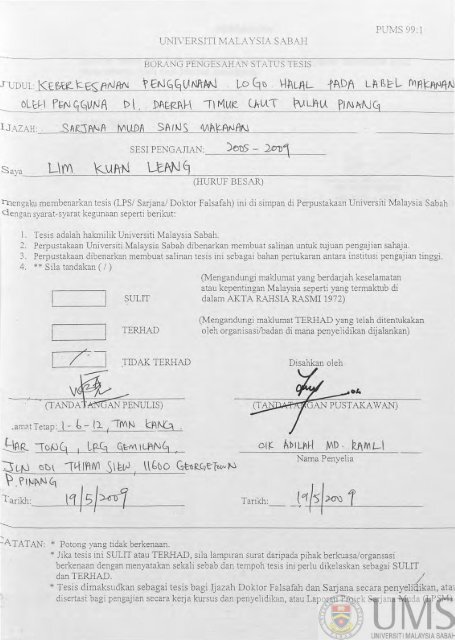 PUMS 99:1
UNIVERSITI MALAYSIA SABAH
BORANG PENGESAHAN STATUS TESIS
JUDUL: KEBERKESANAN PENGGUNAAN LOGO HALAL PADA LABEL MAKANAN
OLEH PENGGUNA DI DAERAH TIMUR LAUT PULAU PINANG
IJAZAH: SARJANA MUDA SAINS MAKANAN
SESI PENGAJIAN: 2005 - 2009
Saya LIM KUAN LEANG
(HURUF BESAR)
mengaku membenarkan tesis (LPS/ Sarjana/ Doktor Falsafah) ini di simpan di Perpustakaan Universiti Malaysia Sabah
dengan syarat-syarat kegunaan seperti berikut:
1. Tesis adalah hakmilik Universiti Malaysia Sabah.
2. Perpustakaan Universiti Malaysia Sabah dibenarkan membuat salinan untuk tujuan pengajian sahaja.
3. Perpustakaan dibenarkan membuat salinan tesis ini sebagai bahan pertukaran antara institusi pengajian tinggi.
4. ** Sila tandakan ( / )
(Mengandungi maklumat yang berdarjah keselamatan
atau kepentingan Malaysia seperti yang termaktub di
SULIT dalam AKTA RAHSIA RASMI 1972)
(Mengandungi maklumat TERHAD yang telah ditentukan
TERHAD oleh organisasi/badan di mana penyelidikan dijalankan)
/ TIDAK TERHAD Disahkan oleh
(TANDATANGAN PENULIS) (TANDATANGAN PUSTAKAWAN)
Lamat Tetap: 1-6-12, TMN KANG
LIAR TONG, LRG GEMILANG,
CIK ADILAH MD. RAMLI
JLN ODI THIAM SIEW, 11600 GEORGETOWN Nama Penyelia
P.PINANG
Tarikh: 19/5/2009 Tarikh: 19/5/2009
CATATAN: * Potong yang tidak berkenaan.
* Jika tesis ini SULIT atau TERHAD, sila lampiran surat daripada pihak berkuasa/organsasi
berkenaan dengan menyatakan sekali sebab dan tempoh tesis ini perlu dikelaskan sebagai SULIT
dan TERHAD.
* Tesis dimaksudkan sebagai tesis bagi Ijazah Doktor Falsafah dan Sarjana secara penyelidikan, atau
disertasi bagi pengajian secara kerja kursus dan penyelidikan, atau Laporan Projek Sarjana Muda (LPSM)
UMS
UNIVERSITI MALAYSIA SABAH